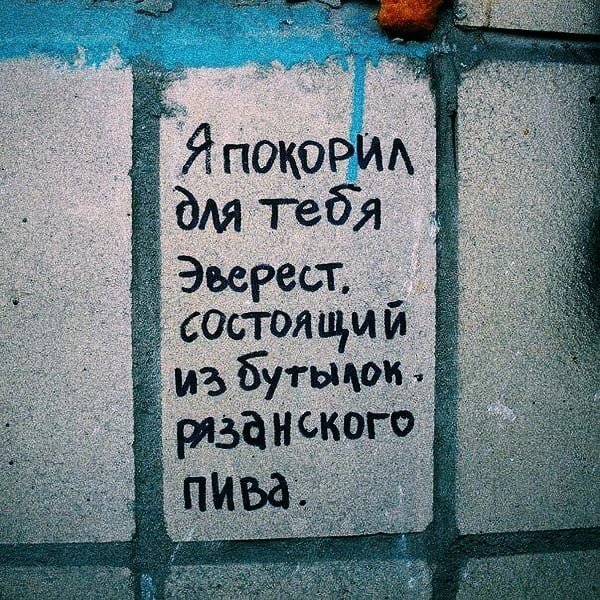 Я покорил
для тебя
Эверест,
состоящий
из бутылок
рязанского
пива.